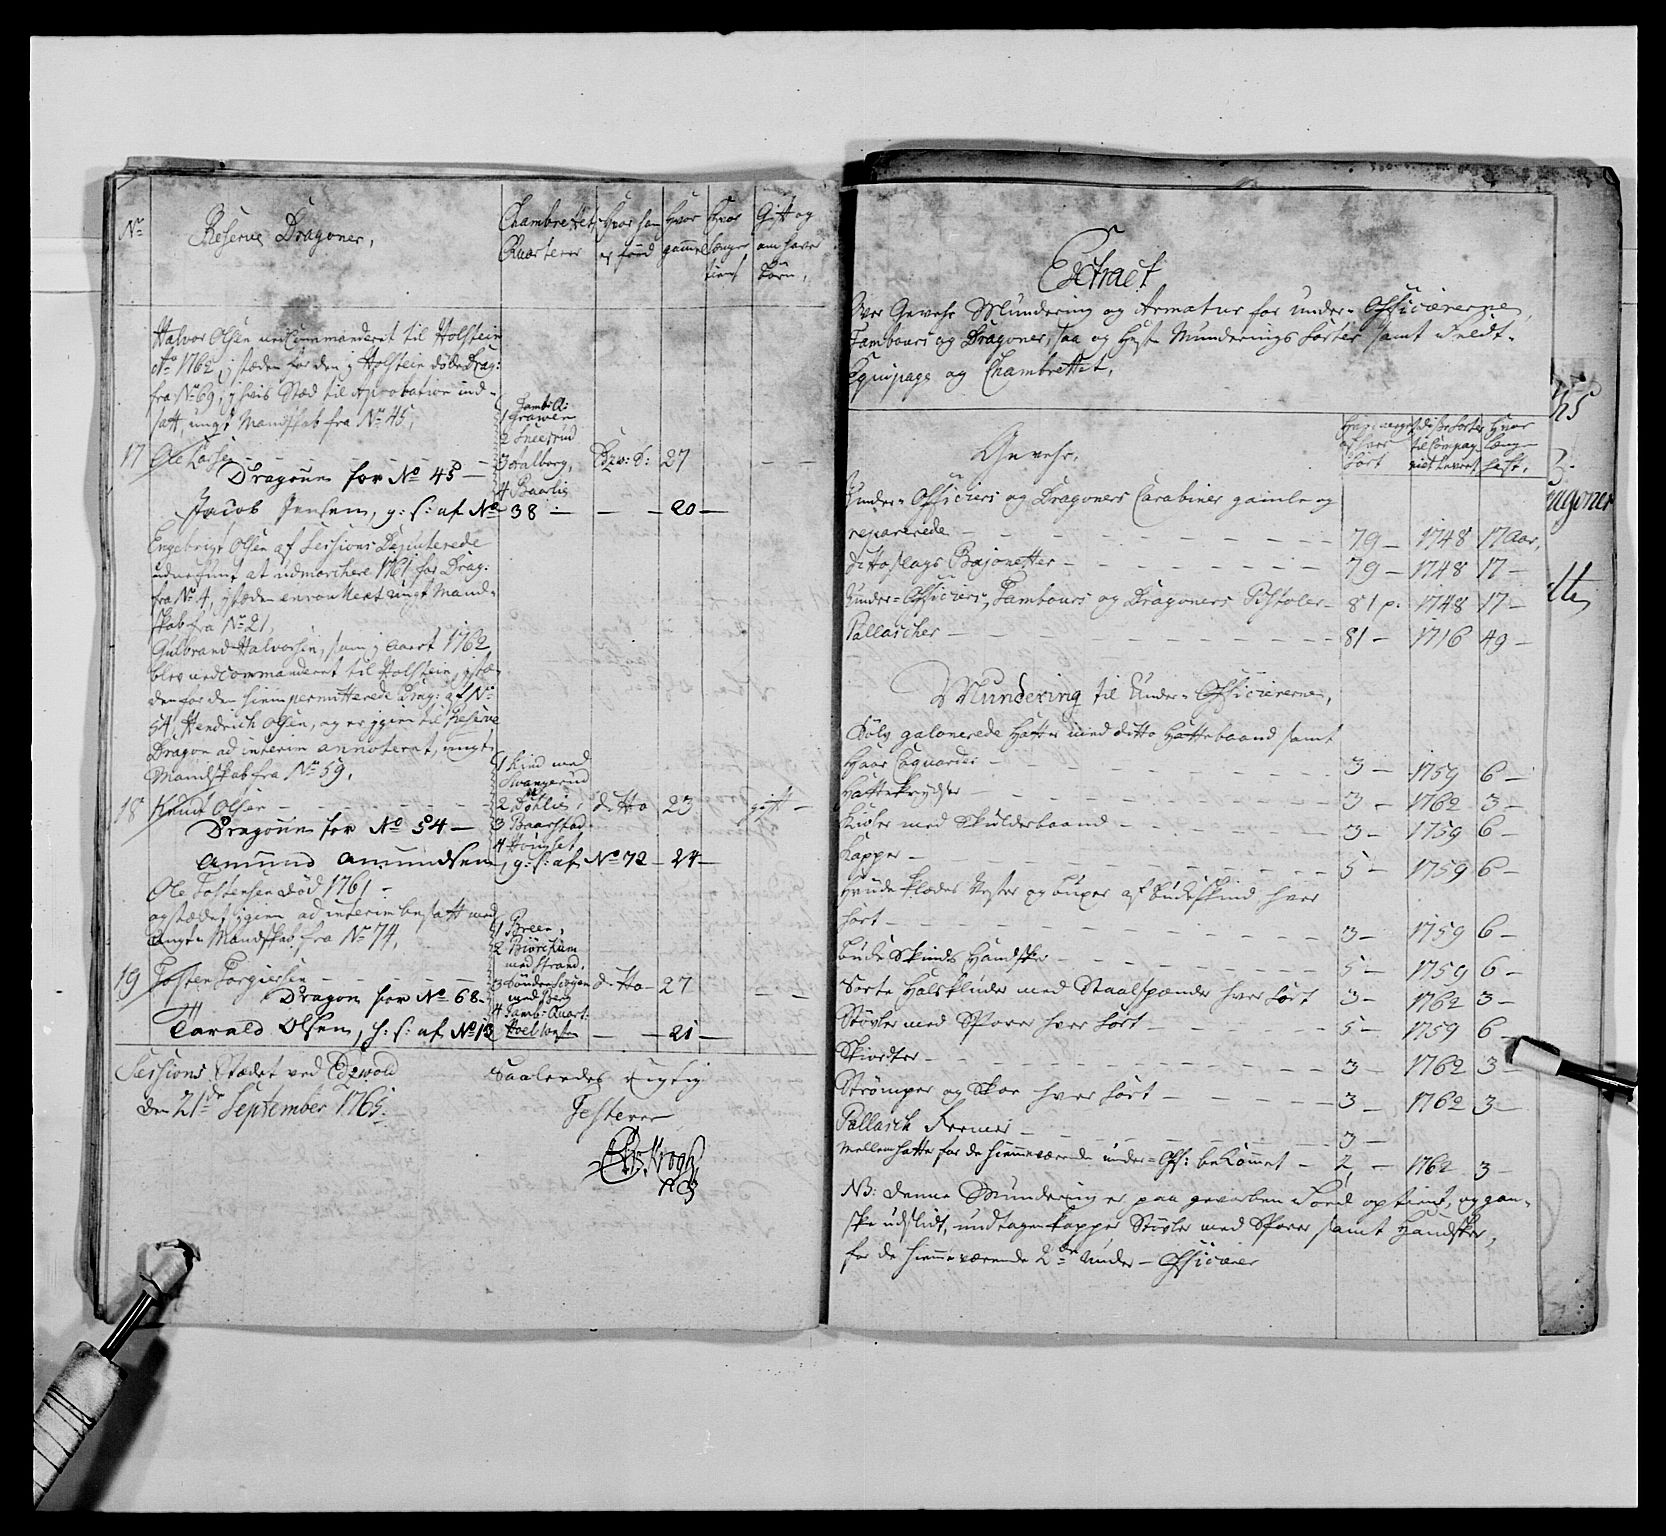 No
Reserve Dragoner,
Chambrettets Quarterer
Hvor han er född
Hvor gammel
Hvor længe tient
Gift og om haver börn,
Halvor Olsen udCommanderet til Holstein
Ao 1762, i stæden for den i Holstein döde Drag:
fra No 69, i hvis Stæd til Aprobation ind-
satt, ungt Mandskab fra No 45,
17 Ole Larsen - - - - - -
Tambs Q:
1 Grawen
2 Sneesrud
3 Aalborg,
4 Baarlie
Edzv: S: 27 - -
Dragoun for No 45 -
Jacob Jensen, g: s: af No 38 - - - 20 -
Engebrigt Olsen af Sessions Deputerede
udnefnnt at udmarchere 1761 for Drag:
fra No 4, i stæden enroullert ungt Mand-
skab fra No 21,
Gulbrand Halvorsen, som i Aaret 1762
blev udCommanderet til Holstein, i stæ-
den for den hiempermitterede Drag: af No
54, Hendrich Olsen, og er igien til Reserve
Dragon ad interim annoteret, ungt
Mandskab fra No 59,
18 Knud Olsen - - - - - -
1 Lund med
Svangerud
2 Döhlie,
3 Baarstad
4 Hönset
ditto 23 gift -
Dragoun for No 54 -
Amund Amundsen, g: s: af No 72 - 24 -
Ole Tostensen död 1761 -
og stædet igien ad interim besatt med
ungt Mandskab fra No 74,
19 Tosten Torgiersen - - - - -
1 Breen,
2 Biörchum
med Strand,
med Berg
4 Tamb: Quart:
ditto - 27 - -
Dragon for No 68 -
Tarald Olsen, h: s: af No 13 - - 21 -
Sessions Stædet ved Edzwold
den 21de September 1765.
Saaledes rigtig
Testerer
Krogh
Extract
Over Gevehr Mundering og Armatur for under-Officiererne,
Tambours og Dragoner, saa og Heste Munderings Sorter samt Feldt-
Equipage og Chambrettet,
Gevehr,
af hver Sort
disse Sorter til Compagniet leveret
Hvor længe hafft,
Under-Officiers og Dragoners Carabiner gamle og
reparerede - - - 79 - 1748 17 Aar,
ditto slags Bajonetter - - - 79 - 1748 17 -
Under-Officiers, Tambours og Dragoners Pistoler - 81 p: 1748 17 -
Pallascher - - - 81 - 1716 49 -
Mundering til Under-Officiererne,
Sölv galonerede Hatter med ditto Hattebaand samt
Haar Coquarder - - - 3 - 1759 6 -
Hattekrydser - - - 3 - 1762 3 -
Kioler med Skulderbaand - - - 3 - 1759 6 -
Kapper - - - 5 - 1759 6 -
Hvide klædes Vester og Buxer af Bukskind hver
Sort - - - 3 - 1759 6 -
Bukke Skinds Handsker - - - 5 - 1759 6 -
Sorte Halskluder med Staalspænder hver Sort 3 - 1762 3 -
Stövler med Sporer hver Sort - - - 5 - 1759 6 -
Skiorter - - - 3 - 1762 3 -
Strömper og Skoe hver Sort - - - 3 - 1762 3 -
Pallasch Remer - - - 3 -
Mellemhatte for de hiemmeværende under-Off: bekommet - 2, - 1762 3 -
NB: denne Mundering er paa gevorben Foed optient, og gan-
ske udslidt, undtagen Kapper Stövler med Sporer samt Handsker,
for de hiemmeværende 2de Under-Officierer